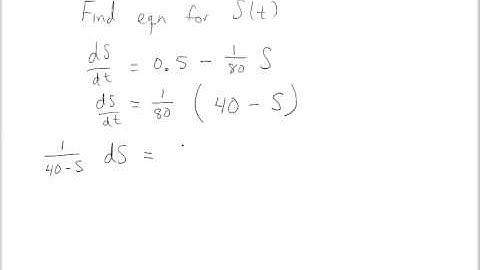 Find eqn for S(t)
dS/dt = 0.5 - 1/80 S
dS/dt = 1/80 ( 40 - S )
1/40-S dS =